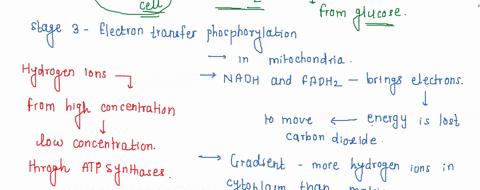 cell
from glucose.
Stage 3 - Electron transfer phosphorylation
→ in mitochondria.
Hydrogen ions
→ NADH and FADH2 – brings electrons.
from high concentration
to move ← energy is lost
carbon dioxide.
low concentration.
throgh ATP synthases.
→ Gradient - more hydrogen ions in
cytoplasm than